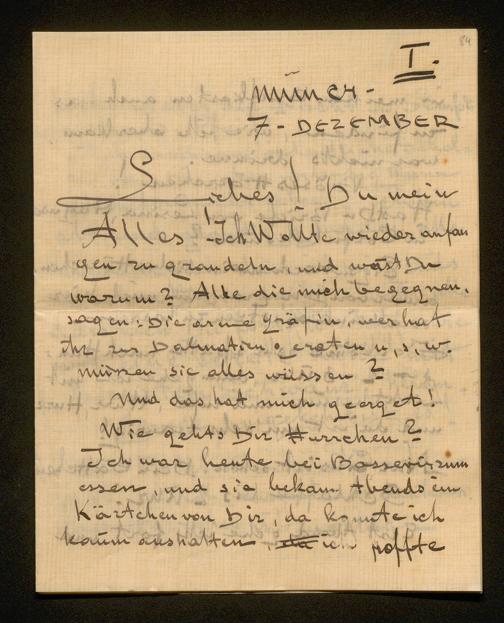 84
I.
münch-
7- DEZEMBER
Liebes! Du mein
Alles! Ich Wollte wieder anfan
gen zu grandeln, und wäst Du
warum? Alke die mich begegnen,
sagen: Die arme Gräfin, wer hat
ihr zur Dalmatien geraten u, s, w.
müssen sie alles wüssen?
Und das hat mich georget!
Wie gehts Dir Hurrchen?
Ich war heute bei zum
essen, und sie bekam Abends ein
Kärtchen von Dir, da konnte ich
kaum aushalten, ich hoffte